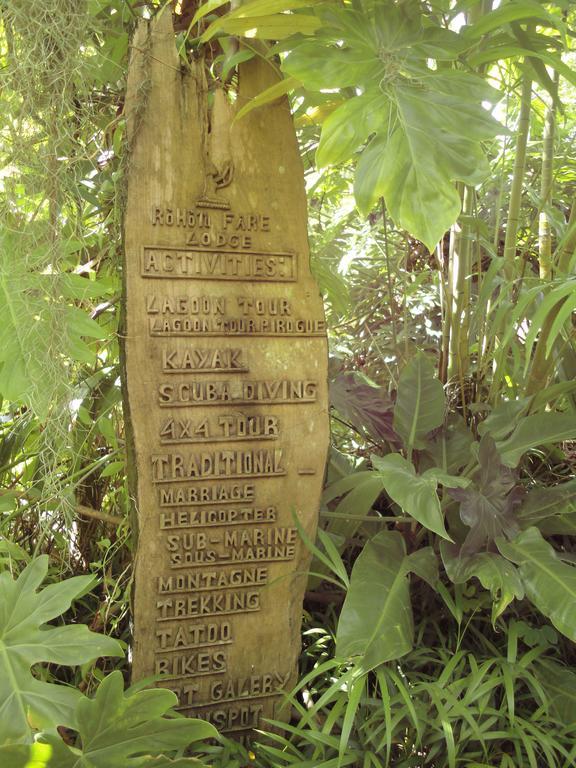 ROHOTU FARE
LODGE
ACTIVITIES:
LAGOON TOUR
LAGOON TOUR.PIROGUE
KAYAK
SCUBA-DIVING
4X4 TOUR
TRADITIONAL _
MARRIAGE
HELICOPTER
SUB-MARINE
SOUS-MARINE
MONTAGNE
TREKKING
TATOO
BIKES
GALERY